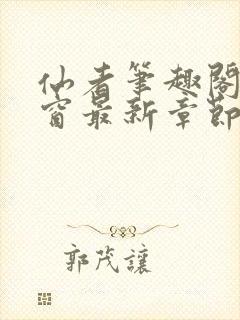 仙者筆趣閣
窗最新章節
郭茂讓